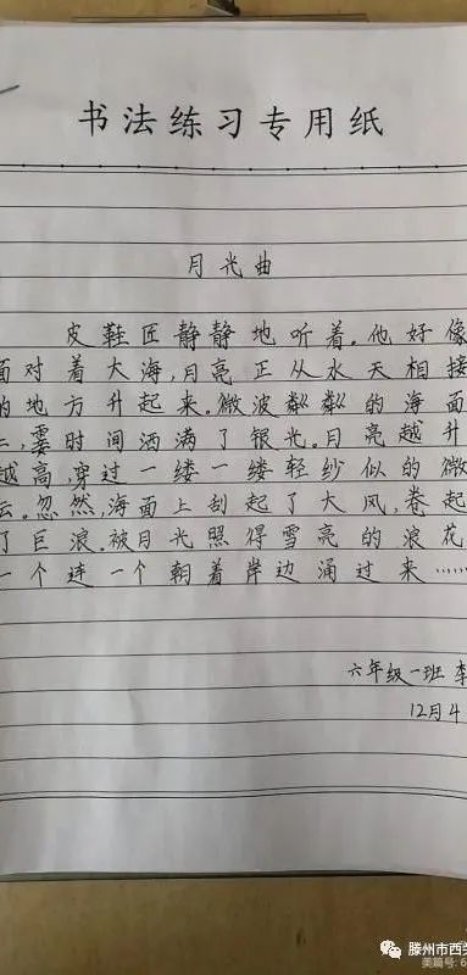 书法练习专用纸
月光曲
皮鞋匠静静地听着。他好像
面对着大海,月亮正从水天相接
的地方升起来。微波粼粼的海面
上,霎时间洒满了银光。月亮越升
越高,穿过一缕一缕轻纱似的微
云。忽然,海面上刮起了大风,卷起
了巨浪。被月光照得雪亮的浪花
一个连一个朝着岸边涌过来……
六年级一班 李
12月4
滕州市西
美篇号: 6